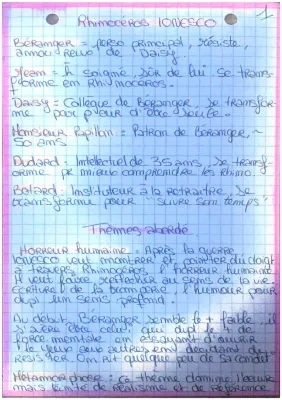 1
Rhinocéros IONESCO
Béranger = perso principal, résiste,
amoureux de Daisy
Jean = h soigné, sûr de lui se trans-
forme en Rhinocéros.
Daisy = Collègue de Béranger, se transfor-
me par peur d'être seule.
Monsieur Papillon = Patron de Béranger, ~
50 ans
Dudard = Intellectuel de 35 ans, se transf-
orme pr mieux comprendre les Rhino.
Botard = Instituteur à la retraite, se
transforme pour "suivre son temps"
Thèmes abordé
Horreur humaine = Après la guerre,
Ionesco veut montrer et pointer du doigt
à travers Rhinocéros, l'horreur humaine.
Il veut faire au sens de la vie.
Ecriture de la , l'humour pour
un sens profond.
Au début Béranger semble le + faible, il
s'avère être celui qui le + de
force mentale en essayant d'ouvrir
les yeux aux autres en décidant de
résister. On rit quelque peu de sa condit°
Métamorphose = ce thème domine l'œuvre
mais limite de réalisme et de référence